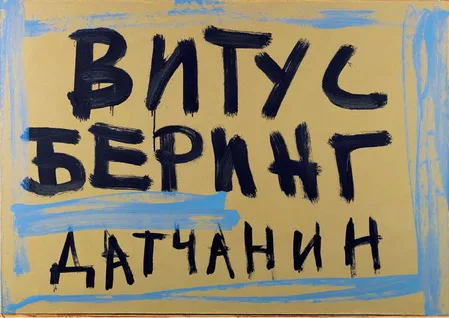 ВИТУС
БЕРИНГ
ДАТЧАНИН